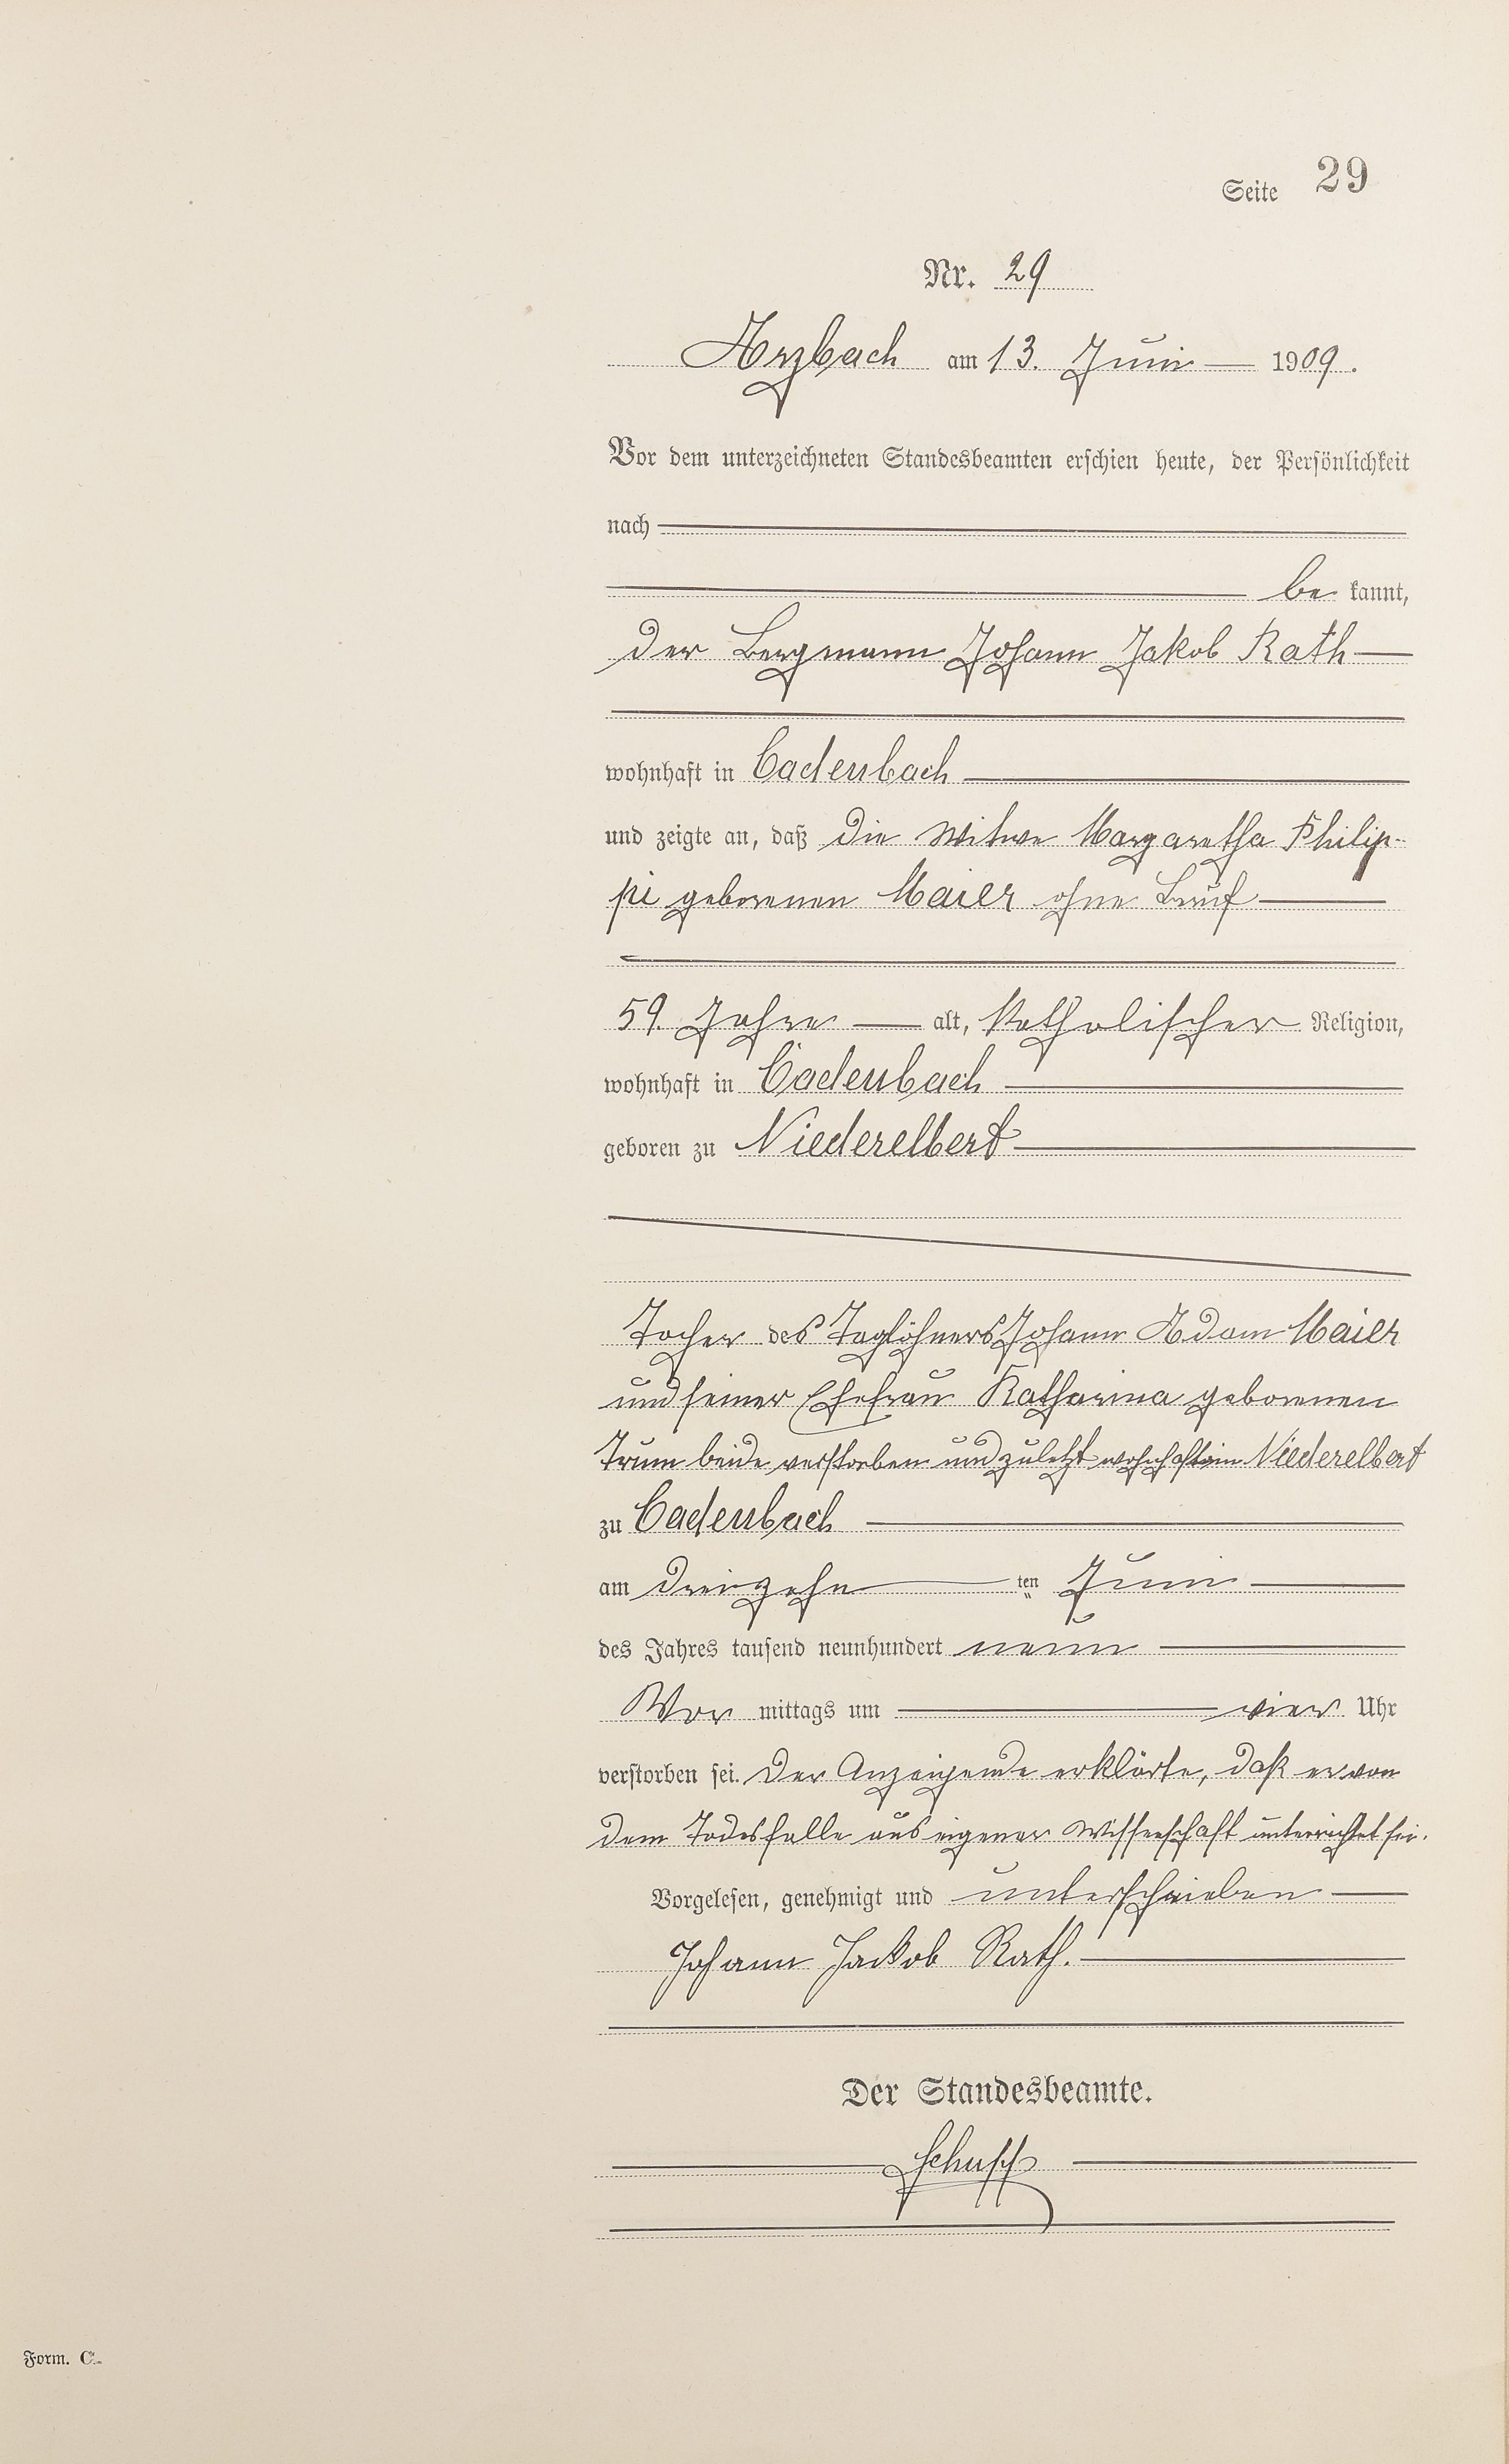 Seite 29
Nr. 29
Arzbach am 13. Juni 1909.
Vor dem unterzeichneten Standesbeamten erschien heute, der Persönlichkeit
nach
be kannt,
der Bergmann Johann Jakob Rath
wohnhaft in Cadenbach
und zeigte an, daß die Witwe Margaretha Philip-
pi geborenen Maier ohne Beruf
59. Jahre alt, katholischer Religion,
wohnhaft in Cadenbach
geboren zu Niederelbert
Tocher des Taglöhners Johann Adam Maier
und seiner Ehefrau Katharina geborenen
Trum beide verstorben und zuletzt wohnhaft in Niederelbert
zu Cadenbach
am dreizehn ten Juni
des Jahres tausend neunhundert neun
Vor mittags um vier Uhr
verstorben sei. Der Anzeigende erklärte, daß er von
dem Todesfalle aus eigener Wissenschaft unterrichtet sei.
Vorgelesen, genehmigt und unterschrieben
Johann Jackob Rath.
Der Standesbeamte.
Schupp
Form. C.